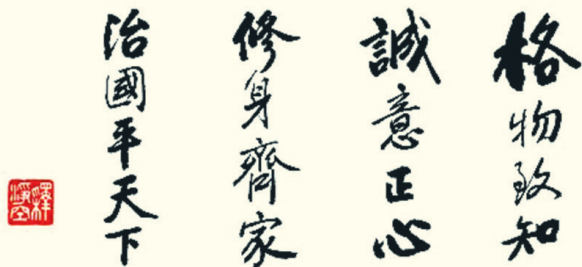 格物致知
誠意正心
修身齊家
治國平天下
釋淨空